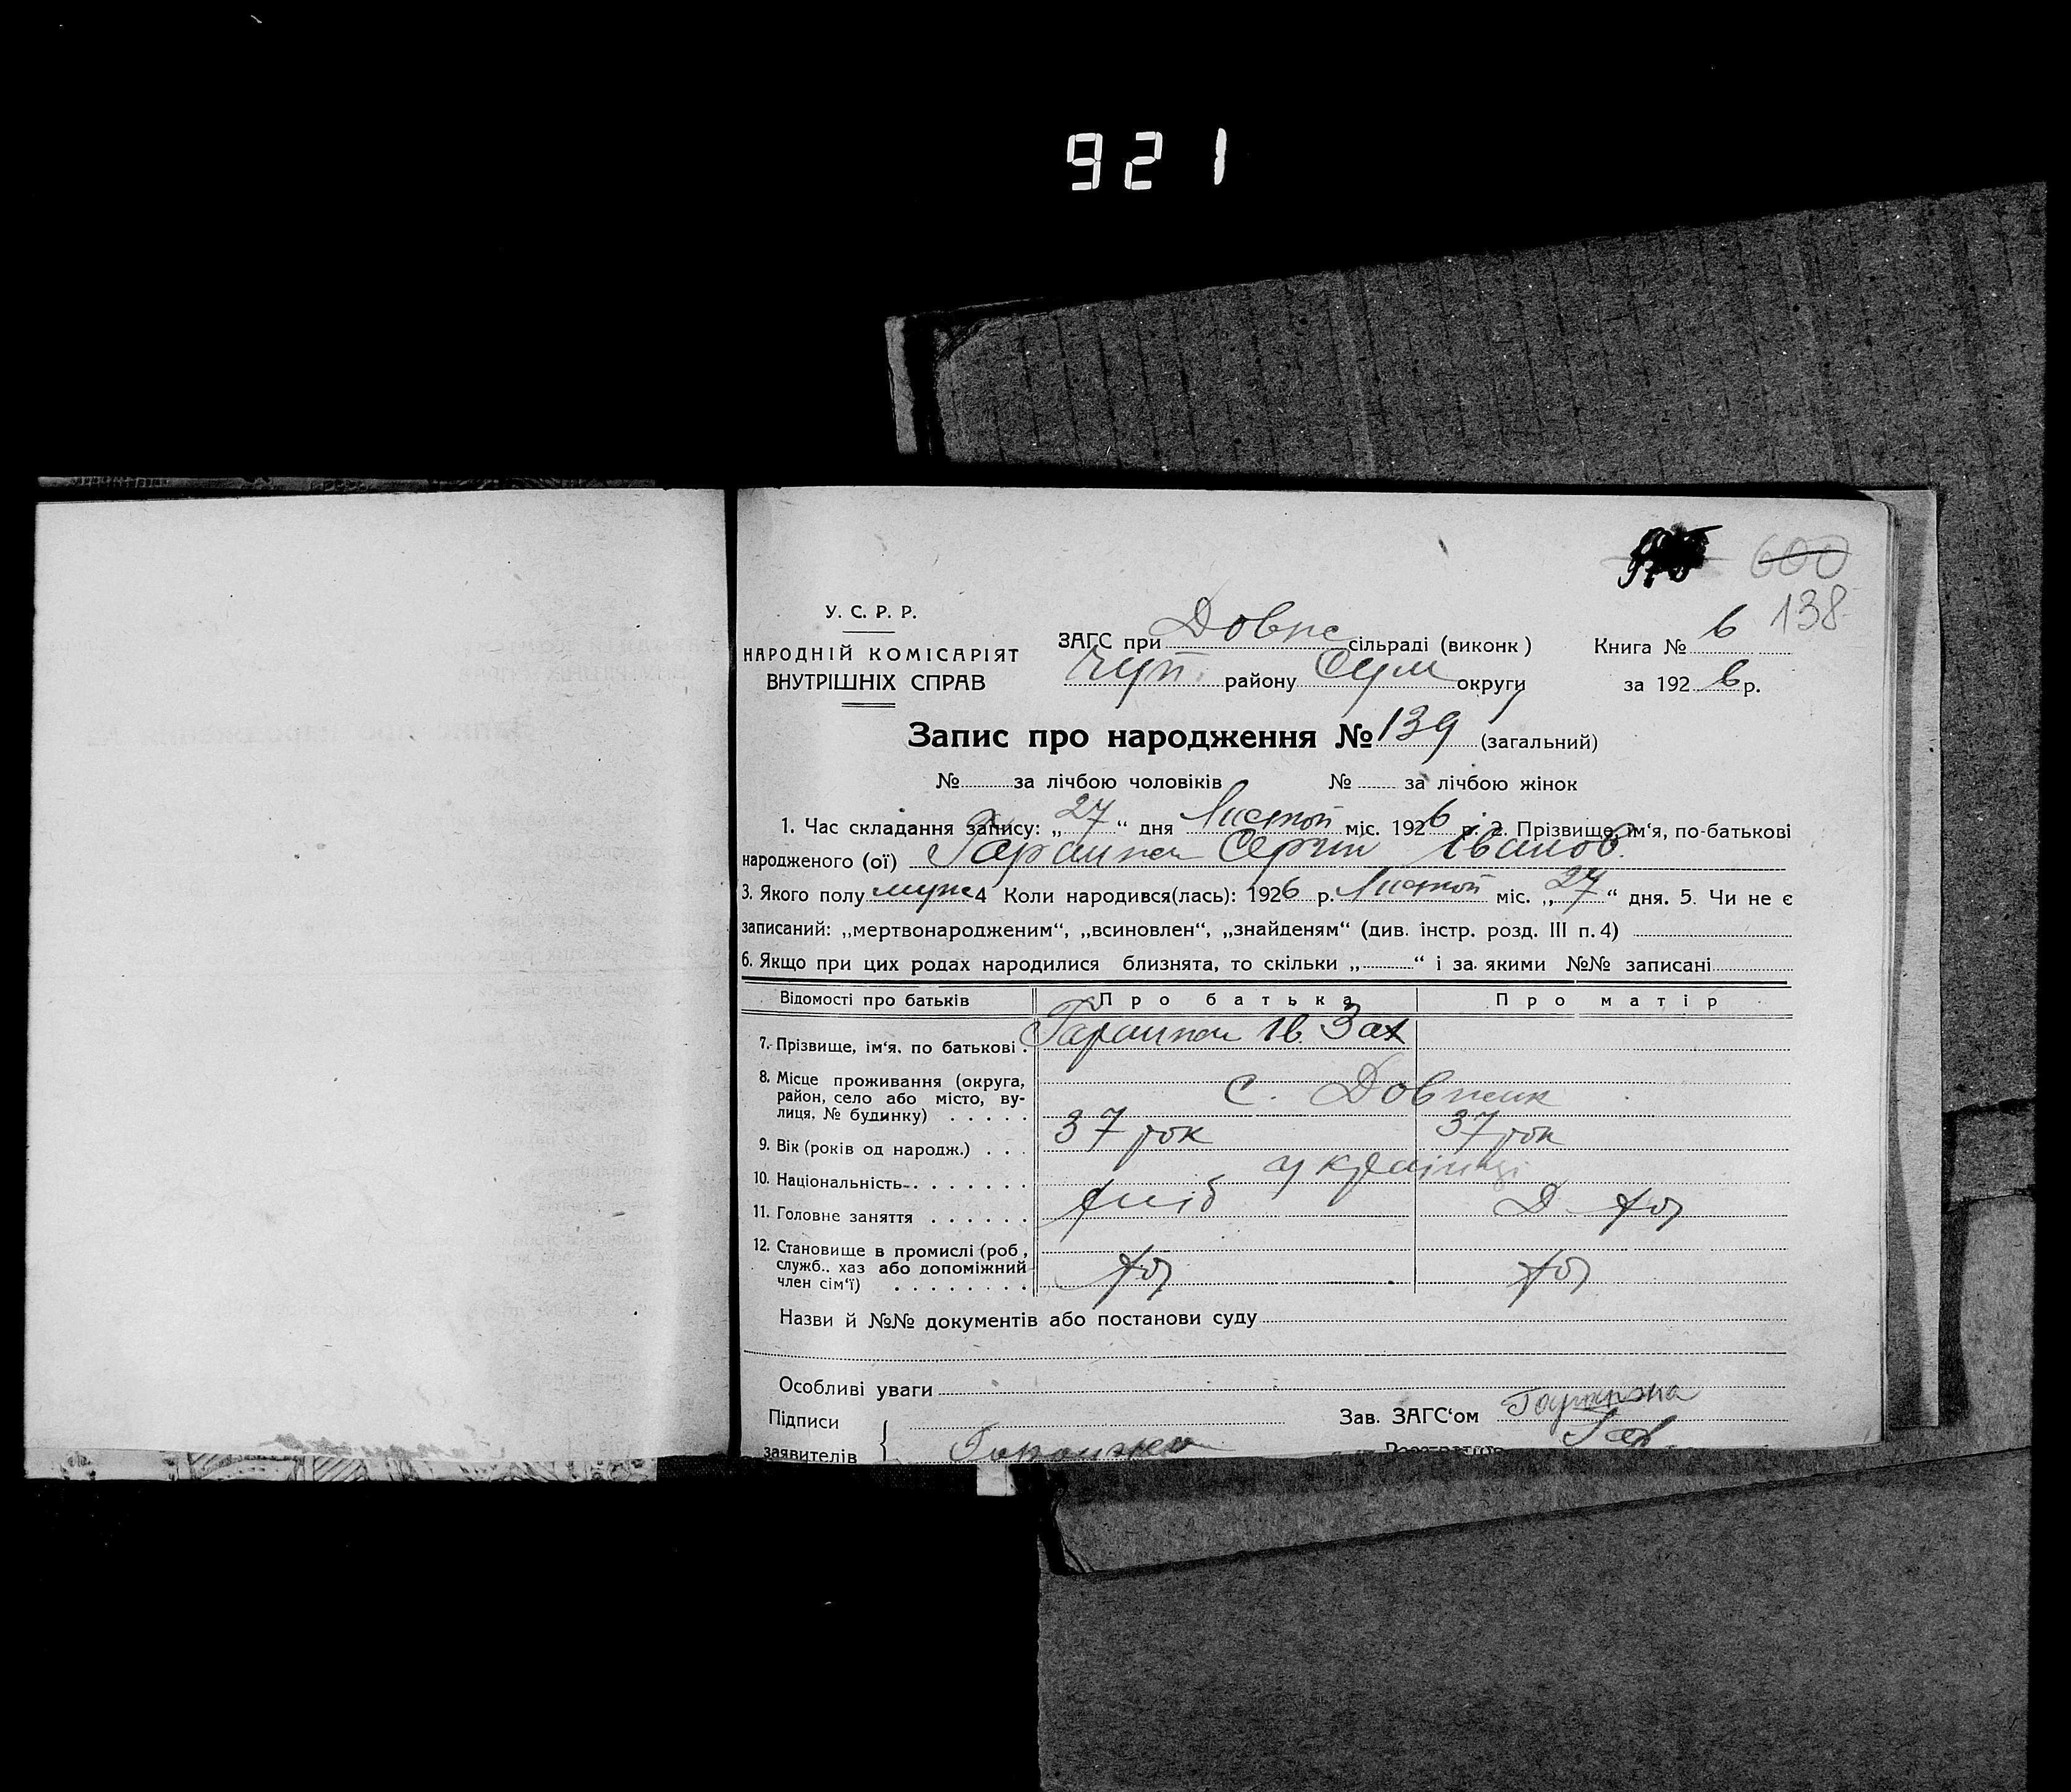 921
600
138
У. С. Р. Р.
НАРОДНІЙ КОМІСАРІЯТ
ВНУТРІШНІХ СПРАВ
ЗАГС при Довж сільраді (виконк)
Чуп. району Сум округи
Книга № 6
за 1926 р.
Запис про народження № 139 (загальний)
№ за лічбою чоловіків № за лічбою жінок
1. Час складання запису: „27“ дня Листоп міс. 1926 р. 2. Прізвище, ім'я, по-батькові
народженого (ої) Гаранжа Сергій Іванов.
3. Якого полу муж 4 Коли народився(лась): 1926 р. Листоп міс. „27“ дня. 5. Чи не є
записаний: „мертвонародженим“, „всиновлен“, „знайденям“ (див. інстр. розд. III п. 4)
6. Якщо при цих родах народилися близнята, то скільки „ “ і за якими №№ записані
Відомості про батьків Про батька Про матір
7. Прізвище, ім'я, по батькові . Гаранжа Ів. Зах
8. Місце проживання (округа,
район, село або місто, ву-
лиця, № будинку) . . . . . с. Довжик
9. Вік (років од народж.) . . . 37 рок 37 рок
10. Національність . . . . . . . українці
11. Головне заняття . . . . . . хліб Д.
12. Становище в промислі (роб,
служб., хаз або допоміжний
член сім'ї) . . . . . . . .
Назви й №№ документів або постанови суду
Особливі уваги
Підписи
заявителів Гаранжа
Зав. ЗАГС'ом